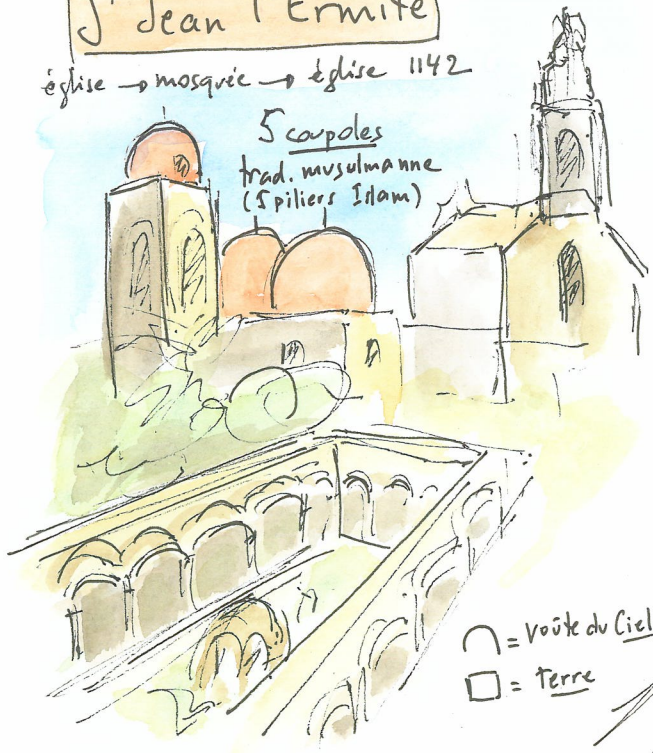 St Jean l'Ermite
église → mosquée → église 1142
5 coupoles
trad. musulmanne
(5 piliers Islam)
= voûte du Ciel
= Terre